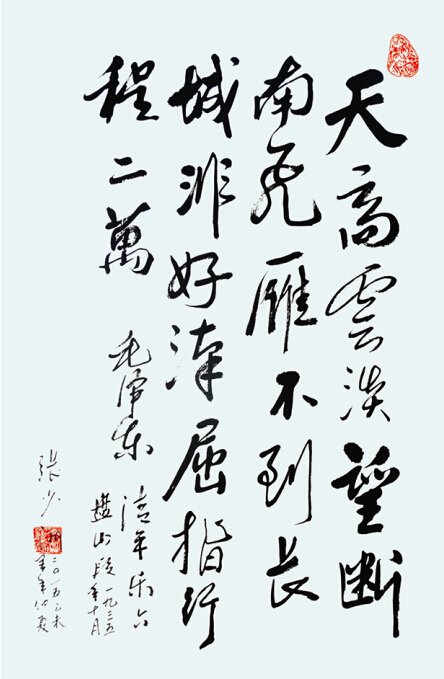 天高雲淡望断
南飛雁不到長
城非好漢屈指行
程二萬
毛澤东
清平乐六
盤山 一九三五
年十月
張少
二〇一五乙未
仲夏